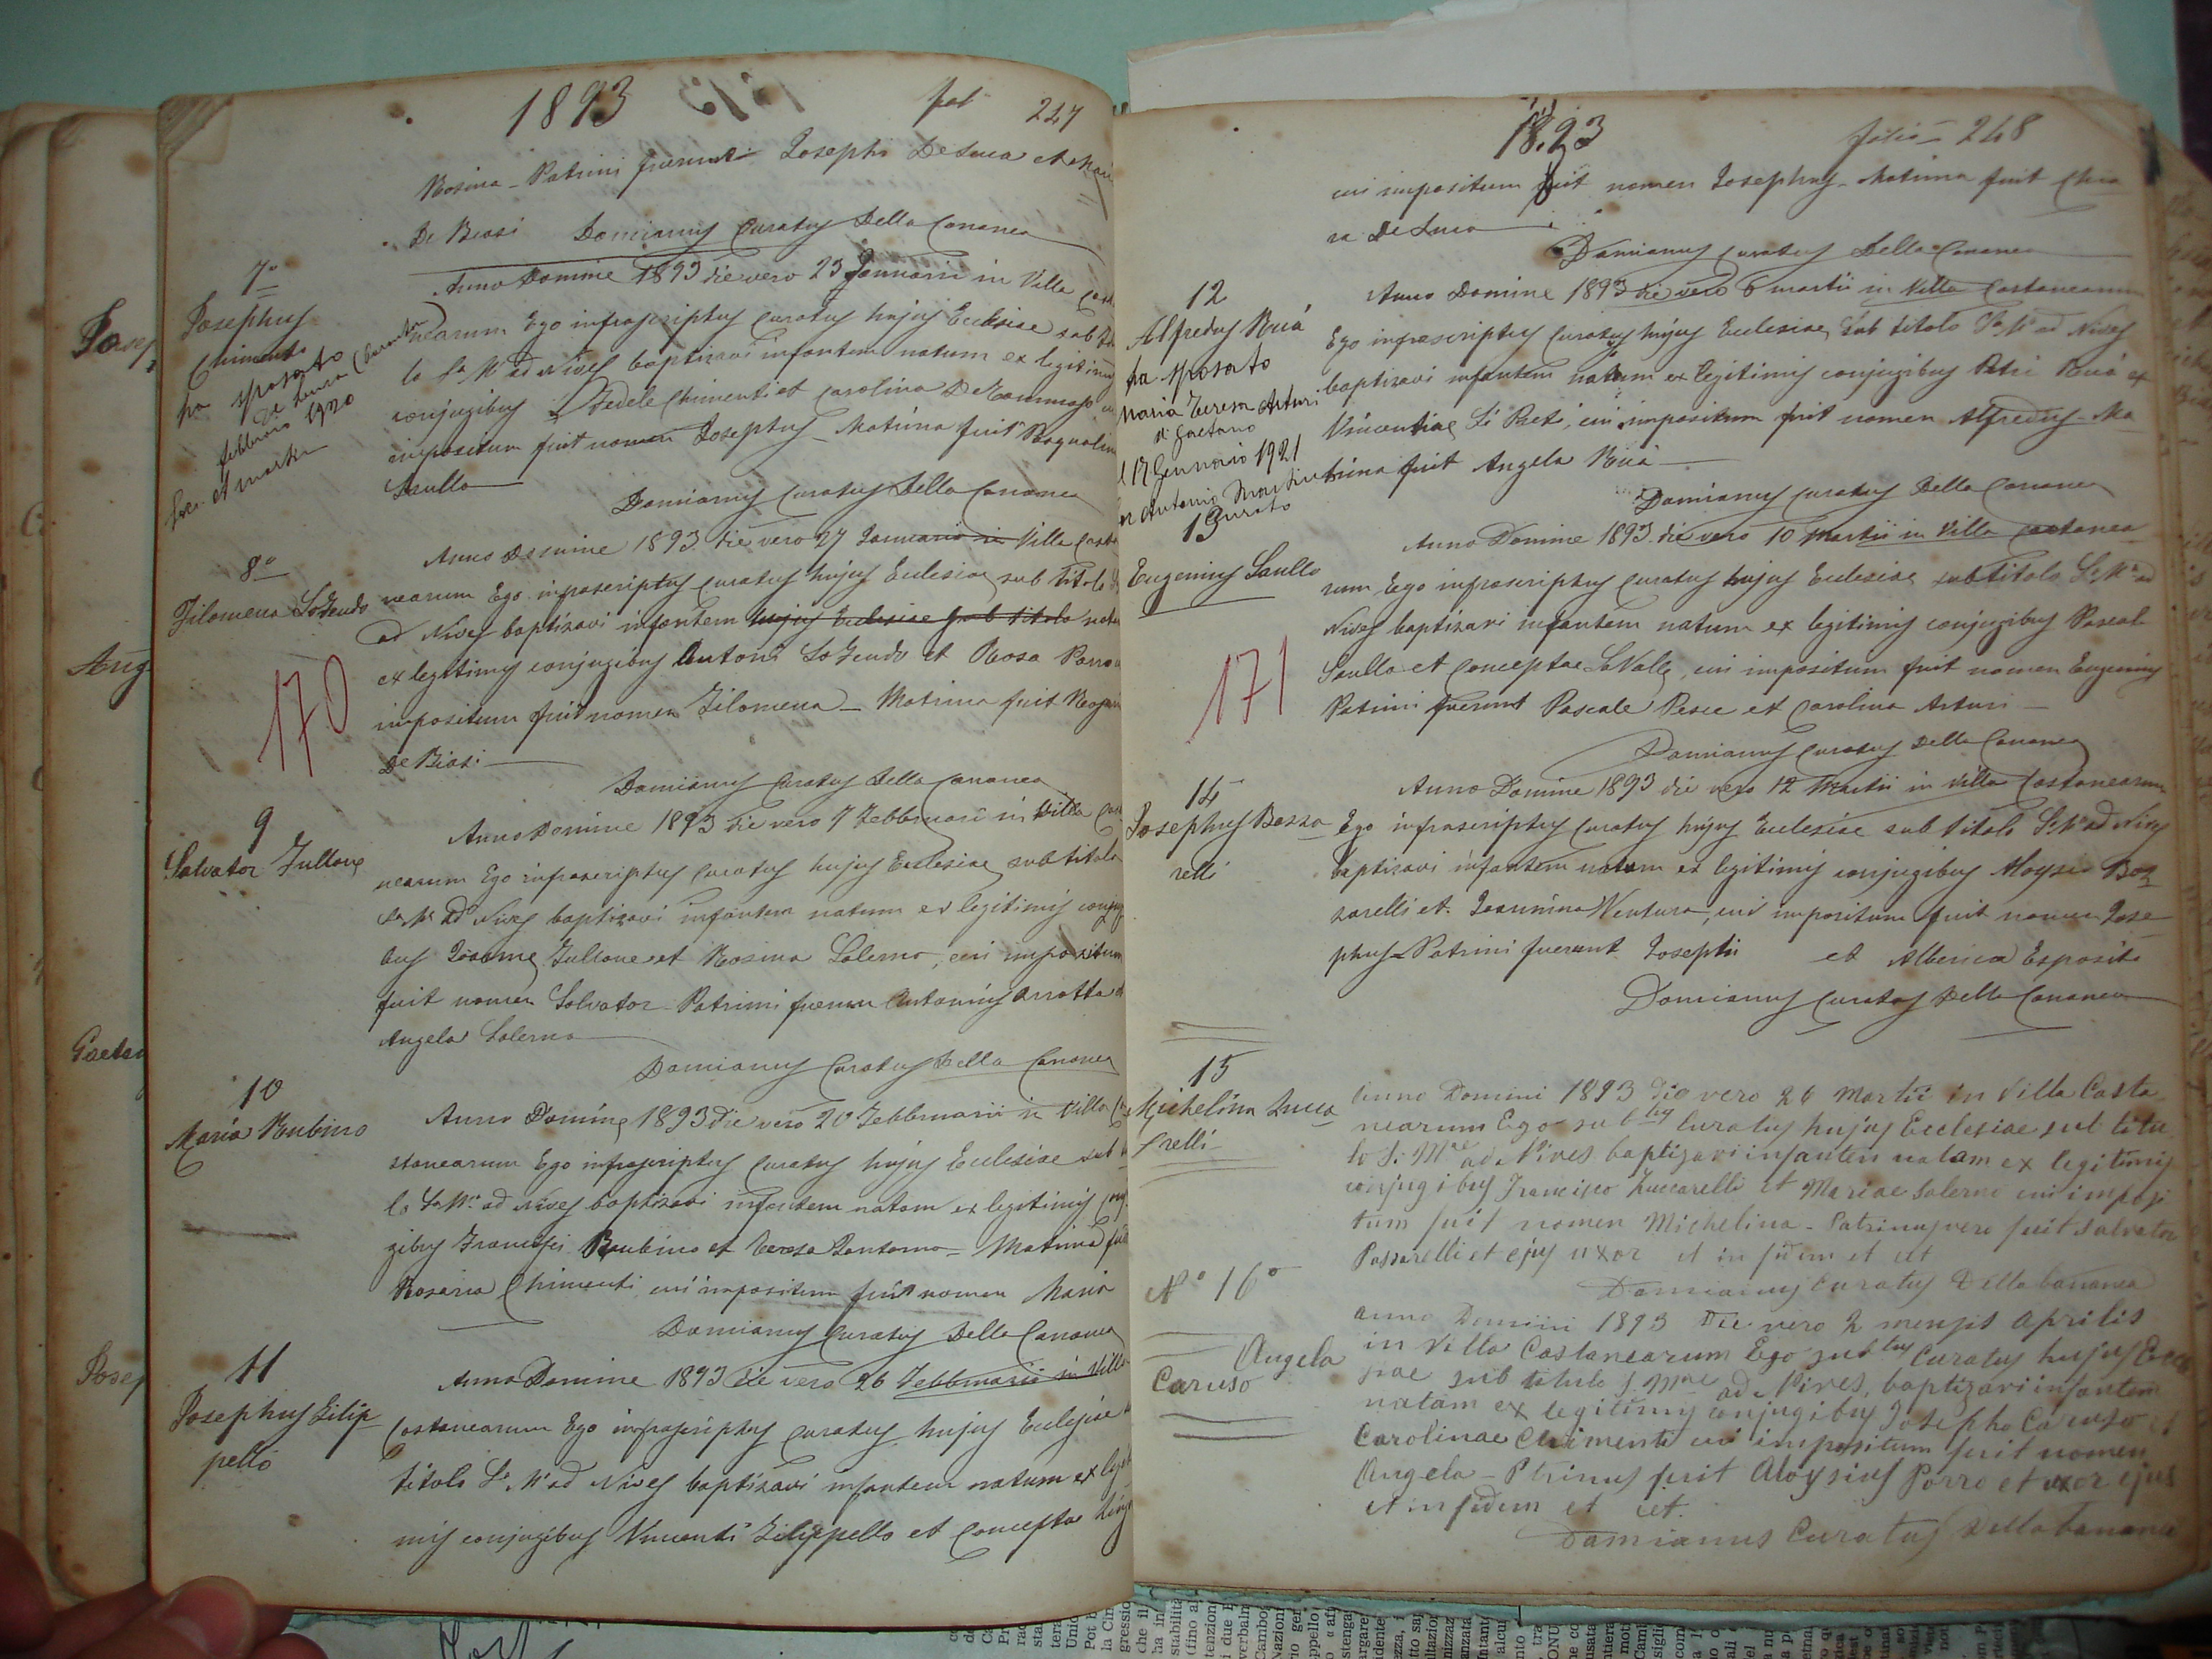 1893
fol 247
Rosina - Patrini fuerunt Josephi De Luca et
De Biasi Damianus Curatus Della Cananea
7º
Josephus
Chimenti
ha sposato
De Luca
febbraio 1920
Anno Domine 1893 die vero 23 Januarii in Villa Casta
nearum Ego infrascriptus Curatus hujus Ecclesiae sub tito
lo Sª Mª ad Nives baptizavi infantem natum ex legitimis
conjugibus Fedele Chimenti et Carolina De Tommaso cui
impositum fuit nomen Josephus - Matrina fuit Pasqualina
Saullo
Damianus Curatus Della Cananea
8º
Filomena LoFeudo
170
Anno Domine 1893 die vero 27 Januario in Villa Casta
nearum Ego infrascriptus Curatus hujus Ecclesiae sub titolo
ad Nives baptizavi infantem hujus Ecclesiae sub titolo natam
ex legitimis conjugibus Antoni LoFeudo et Rosa
impositum fuit nomen Filomena - Matrina fuit
De Biasi
Damianus Curatus Della Cananea
9
Salvator Fullone
Anno Domine 1893 die vero 7 Febbruarii in Villa Casta
nearum Ego infrascriptus Curatus hujus Ecclesiae sub titolo
Sª Mª ad Nives baptizavi infantem natum ex legitimis conjugi
bus Joanne Fullone et Rosina Salerno, cui impositum
fuit nomen Salvator - Patrimi fuerunt Antonius Arrotta et
Angela Salerno
Damianus Curatus Della Cananea
10
Maria Rubino
Anno Domine 1893 die vero 20 Febbruarii in Villa Ca
stanearum Ego infrascriptus Curatus hujus Ecclesiae sub tito
lo Sª Mª ad Nives baptizavi infantem natam ex legitimis conju
gibus Francisci Rubino et Teresa Santoro - Matrina fuit
Rosaria Chimenti, cui impositum fuit nomen Maria
Damianus Curatus Della Cananea
11
Josephus Filip
pello
Anno Domine 1893 die vero 26 Febbruario in Villa
Castanearum Ego infrascriptus Curatus hujus Ecclesiae
titolo Sª Mª ad Nives baptizavi infantem natum ex legiti
mis conjugibus Vincenti Filippello et Concepta
1893
folio - 248
cui impositum fuit nomen Josephus - Matrina fuit Chia
ra De Luca
Damianus Curatus Della Cananea
12
Alfredus Ruá
ha sposato
Maria Teresa Arturi
di Gaetano
il 17 Gennaio 1921
Antonio
Curato
Anno Domine 1893 die vero 6 martii in Villa Castanearum
Ego infrascriptus Curatus hujus Ecclesiae sub titolo Sª Mª ad Nives
baptizavi infantem natum ex legitimis conjugibus Petri Ruá et
Vincentiae Li Preti, cui impositum fuit nomen Alfredus - Ma
trina fuit Angela Ruá
Damianus Curatus Della Cananea
13
Eugenius Saullo
171
Anno Domine 1893 die vero 10 Martii in Villa Castanea
rum Ego infrascriptus Curatus hujus Ecclesiae sub titolo Sª Mª ad
Nives baptizavi infantem natum ex legitimis conjugibus Pascal
Saullo et Conceptae La Valle, cui impositum fuit nomen Eugenius
Patrini fuerunt Pascale Pesce et Carolina Arturi
Damianus Curatus Della Cananea
14
Josephus Bozza
relli
Anno Domine 1893 die vero 12 Martii in Villa Castanearum
Ego infrascriptus Curatus hujus Ecclesiae sub titolo Sª Mª ad Nives
baptizavi infantem natum ex legitimis conjugibus Moysè Boz
zarelli et Joannina Ventura, cui impositum fuit nomen Jose
phus - Patrini fuerunt Josephi et Alberica Esposito
Damianus Curatus Della Cananea
15
Michelina Zucca
relli
Anno Domini 1893 die vero 26 Martii in Villa Casta
nearum Ego subtus Curatus hujus Ecclesiae sub titu
lo S. Mae ad Nives baptizavi infantem natam ex legitimis
conjugibus Francisco Zuccarelli et Mariae Salerno cui imposi
tum fuit nomen Michelina - Patrinus vero fuit Salvator
Passarelli et ejus uxor et in fidem et cet
Damianus Curatus Della Cananea
Nº 16º
Angela
Caruso
anno Domini 1893 Die vero 2 mensis Aprilis
in Villa Castanearum Ego subtus Curatus hujus Eccle
siae sub titulo S. Mae ad Nives, baptizavi infantem
natam ex legitimis conjugibus Josepho Caruso et
Carolinae Chimenti cui impositum fuit nomen
Angela - Ptrinus fuit Aloysius Porro et uxor ejus
et in fidem et cet.
Damianus Curatus Della Cananea